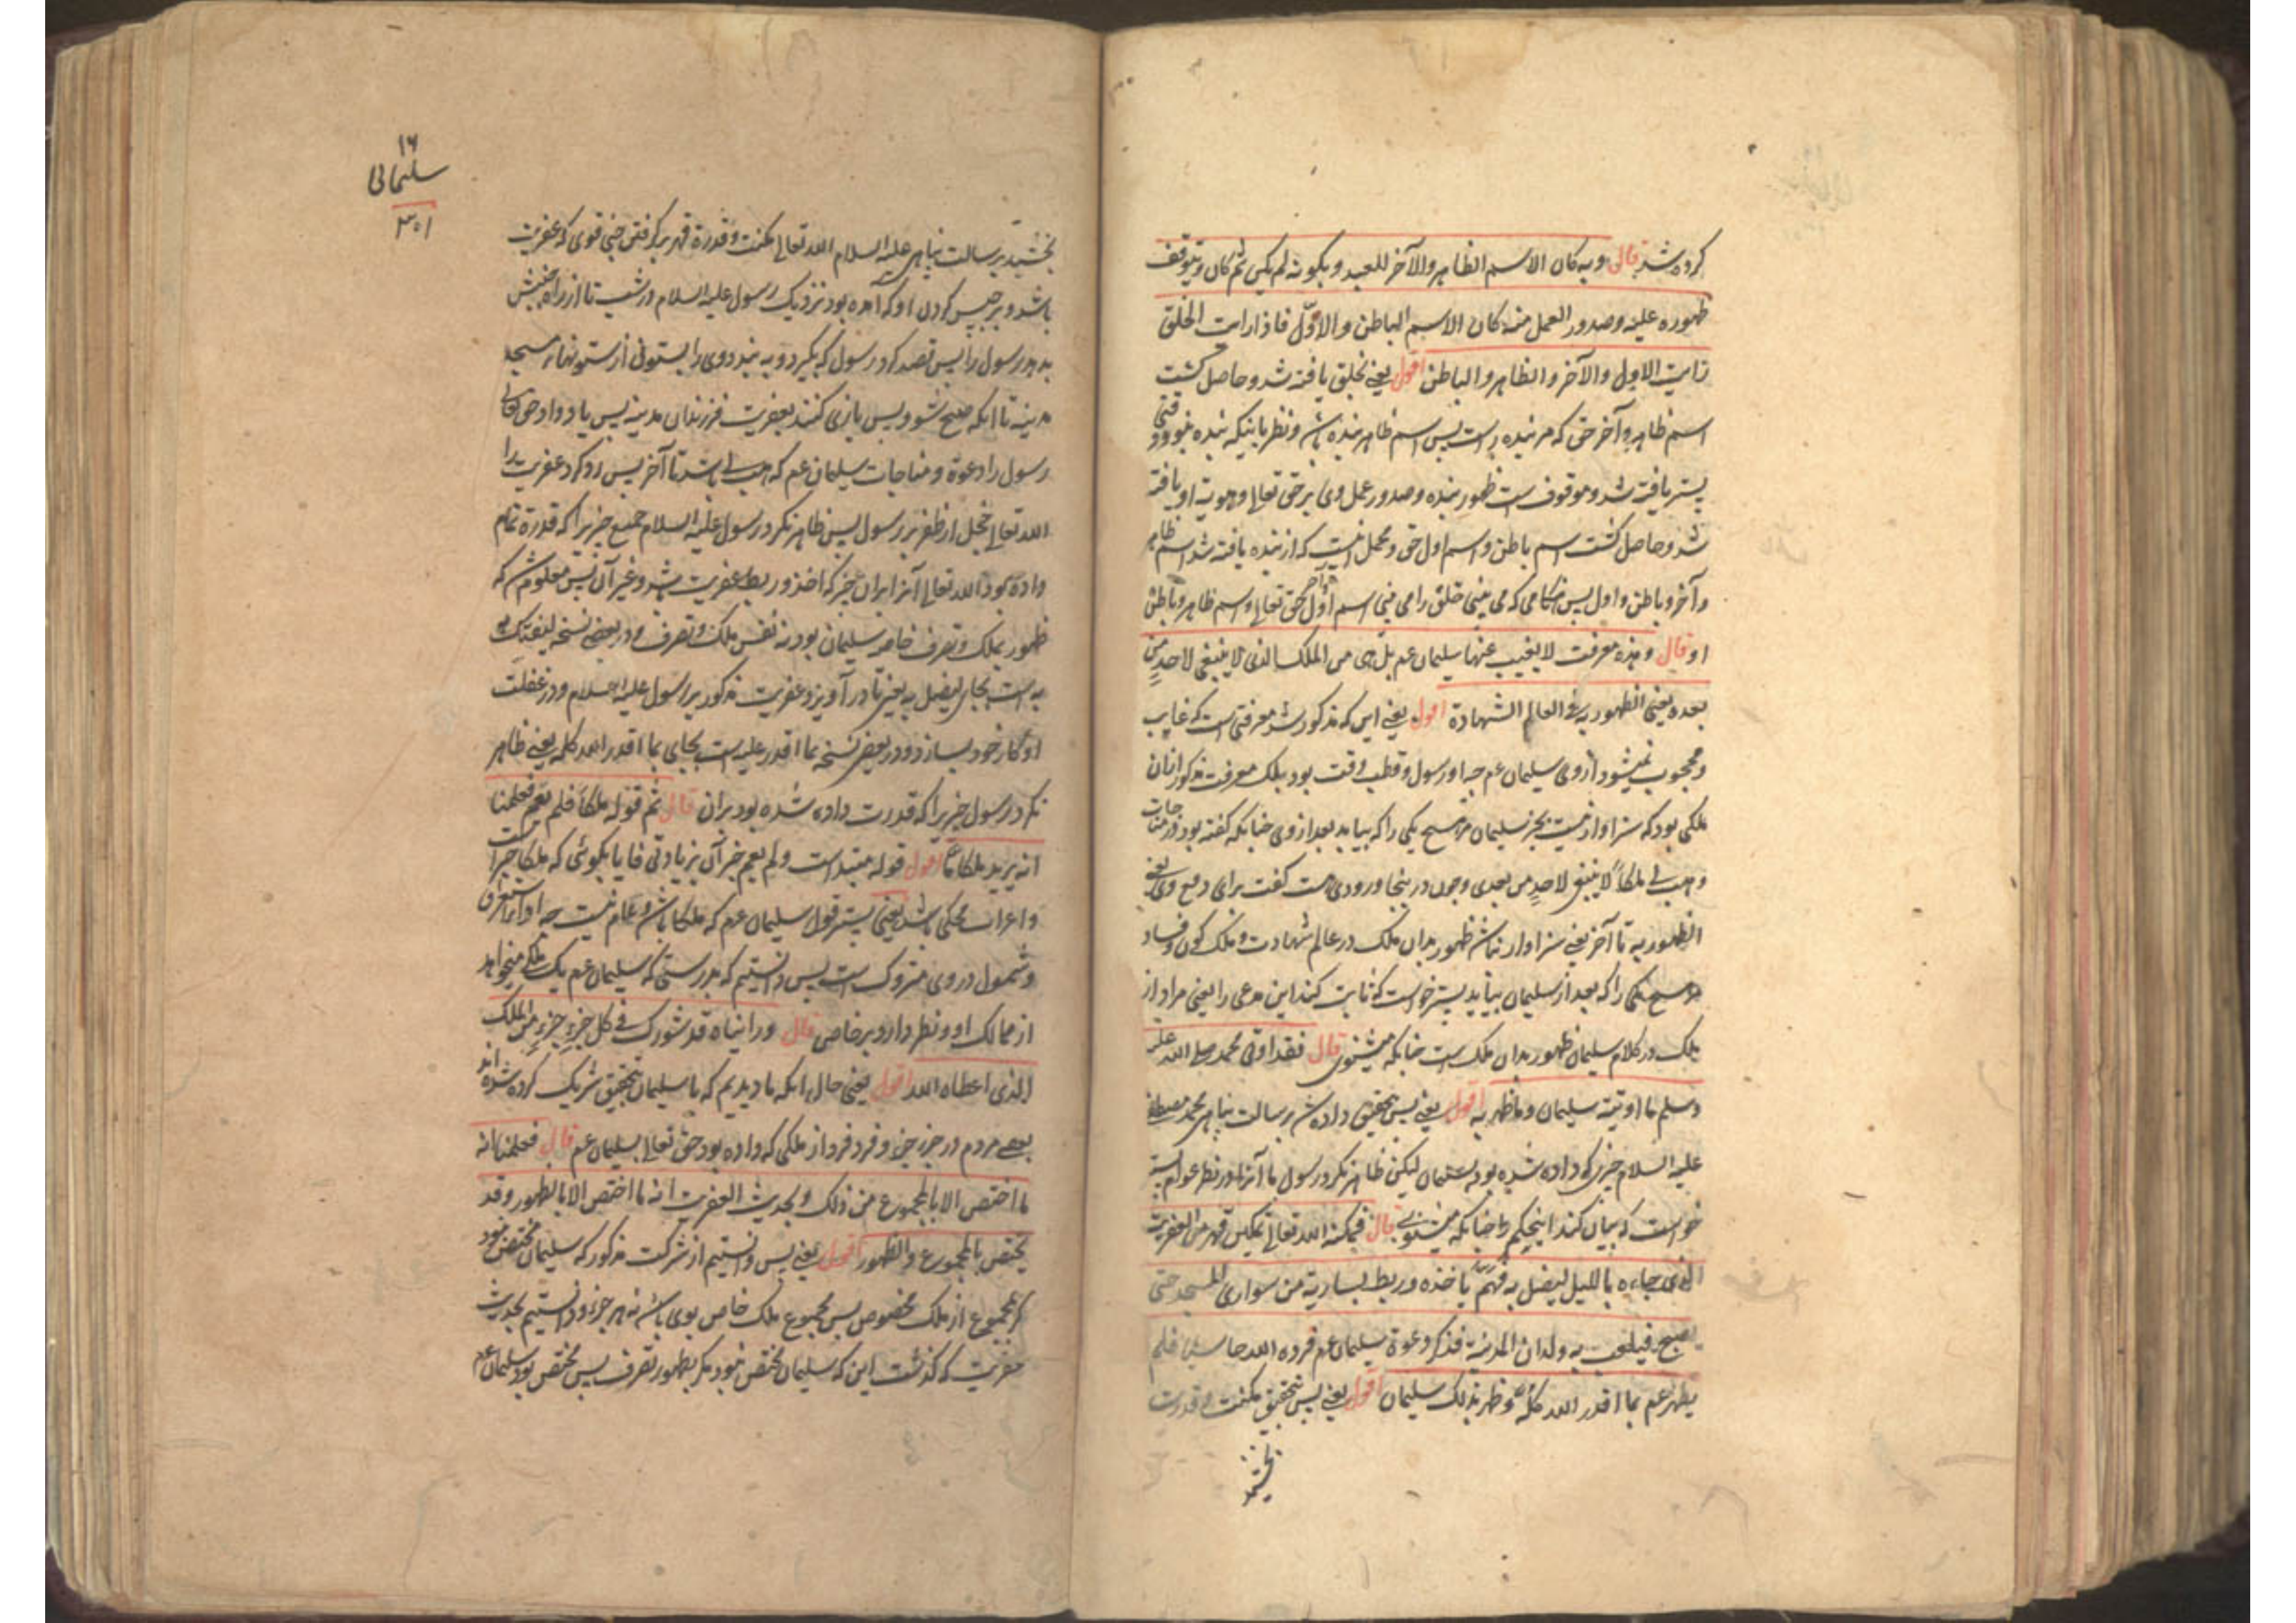 کرده شد قال وبه کان الاسم الظاهر والآخر للعبد وبکونه لم یکن ثم کان وبتوقف
ظهوره علیه وصدور العمل منه کان الاسم الباطن والاول فاذا رایت الخلق
رایت الاول والآخر والظاهر والباطن اقول یعنی بخلق یافته شد و حاصل کشت
اسم ظاهر و آخر حق که مر بنده راست پس اسم ظاهر بنده باشد و نظر باینکه بنده نبود وقتی
پستر یافته شد و موقوف است ظهور بنده و صدور عمل وی بر حق تعالی و هویة او یافته
شد و حاصل کشت اسم باطن و اسم اول حق و مجمل اینست که از بنده یافته شد اسم ظاهر
و آخر و باطن و اول پس هنکامی که می بینی خلق را می بینی اسم اول و آخر حق تعالی و اسم ظاهر و باطن
او قال وهذه معرفت لا یغیب عنها سلیمان عم بل هی من الملک الذی لا ینبغی لاحد من
بعده یعنی الظهور به فی العالم الشهادة اقول یعنی این که مذکور شد معرفتی است که غایب
و محجوب نمیشود از وی سلیمان عم چه او رسول و قطب وقت بود بلکه معرفت مذکور ازان
ملکی بود که سزاوار نیست بجز سلیمان مر هیچ یکی را که بیاید بعد از وی چنانکه کفته بود در مناجات
وهب لی ملکا لا ینبغی لاحد من بعدی و چون در ینجا ورودی هست کفت برای دفع وی یعنی
الظهور به تا آخر یعنی سزاوار نباشد ظهور بدان ملک در عالم شهادت و ملک کون و فساد
مر هیچ یکی را که بعد از سلیمان بیاید پستر خواست که ثابت کند این مدعی را یعنی مراد از
ملک در کلام سلیمان ظهور بدان ملک است چنانکه میشنوی قال فقد اوتی محمد صلی الله علیه
وسلم ما اوتیه سلیمان وما ظهر به اقول یعنی پس بتحقیق داده شد برسالت پناهی محمد مصطفی
علیه السلام چیزی که داده شده بود بسلیمان لیکن ظاهر نکرد رسول ما آنرا در نظر عوام پستر
خواست که بیان کند اینحکم را چنانکه میشنوی قال فمکنه الله تعالی تمکین قهر من العفریت
الذی جاءه باللیل لیضل به فهم باخذه وربط بساریة من سواری المسجد حتی
یصبح فیلعب به ولدان المدینة فذکر دعوة سلیمان عم فرده الله خاسئا فلم
یظهر عم بما اقدر الله کله وظهر بذلک سلیمان اقول یعنی پس بتحقیق مکنت و قدرت
بخشید
١٦
سلیمانی
٣٥١
بخشید برسالت پناهی علیه السلام الله تعالی مکنت و قدرة قهر بر کرفتن جنی قوی که عفریت
باشد و بر حبس کردن او که آمده بود نزدیک رسول علیه السلام در شب تا از راه
برد رسول را پس قصد کرد رسول که بکیرد و به بندد وی را بستونی از ستونهاء مسجد
مدینه تا انکه صبح شود پس بازی کنند بعفریت فرزندان مدینه پس یاد داد حق تعالی
رسول را دعوة و مناجات سلیمان عم که هب لی باشد تا آخر پس رد کرد عفریت را
الله تعالی خجل از ظفر بر رسول پس ظاهر نکرد رسول علیه السلام جمیع چیزیرا که قدرة تمام
داده بود الله تعالی آنرا بران چیز که اخذ و ربط عفریت باشد و غیر آن پس معلوم شد که
ظهور بملک و تصرف خاصه سلیمان بود نه نفس ملک و تصرف و در بعضی نسخه لیفتک
به است بجای لیضل به یعنی تا در آویزد عفریت مذکور بر رسول علیه السلام و در غفلت
او کار خود بسازد و در بعضی نسخه بما اقدر علیه است بجای بما اقدر الله کله یعنی ظاهر
نکرد رسول چیزیرا که قدرت داده شده بود بران قال ثم قوله ملکا فلم یعم فعلمنا
انه یرید ملکا ما اقول قوله مبتداست ولم یعم خبر آن بزیادتی فا یا بکوئی که ملکا خبر است
و اعراب محکی باشد یعنی پستر قول سلیمان عم که ملکا باشد و عام نیست چه او را استغراق
و شمول در وی متروک است پس دانستیم که بدرستی که سلیمان عم یک ملک میخواهد
از ممالک او و نظر دارد بر خاص قال ورایناه قد شورک فی کل جزء جزء من الملک
الذی اعطاه الله اقول یعنی حال انکه ما دیدیم که با سلیمان بتحقیق شریک کرده شده اند
بعضی مردم در جزء جزء و فرد فرد از ملکی که داده بود حق تعالی بسلیمان عم قال فعلمنا انه
ما اختص الا بالمجموع من ذلک وبحدیث العفریت انه ما اختص الا بالظهور وقد
یختص بالمجموع والظهور اقول یعنی پس دانستیم از شرکت مذکور که سلیمان مختص نبود
مکر بمجموع از ملک مخصوص پس مجموع ملک خاص بوی باشد نه هر جزء و دانستیم بحدیث
عفریت که کذشت این که سلیمان مختص نبود مکر بظهور تصرف پس مختص بود سلیمان عم